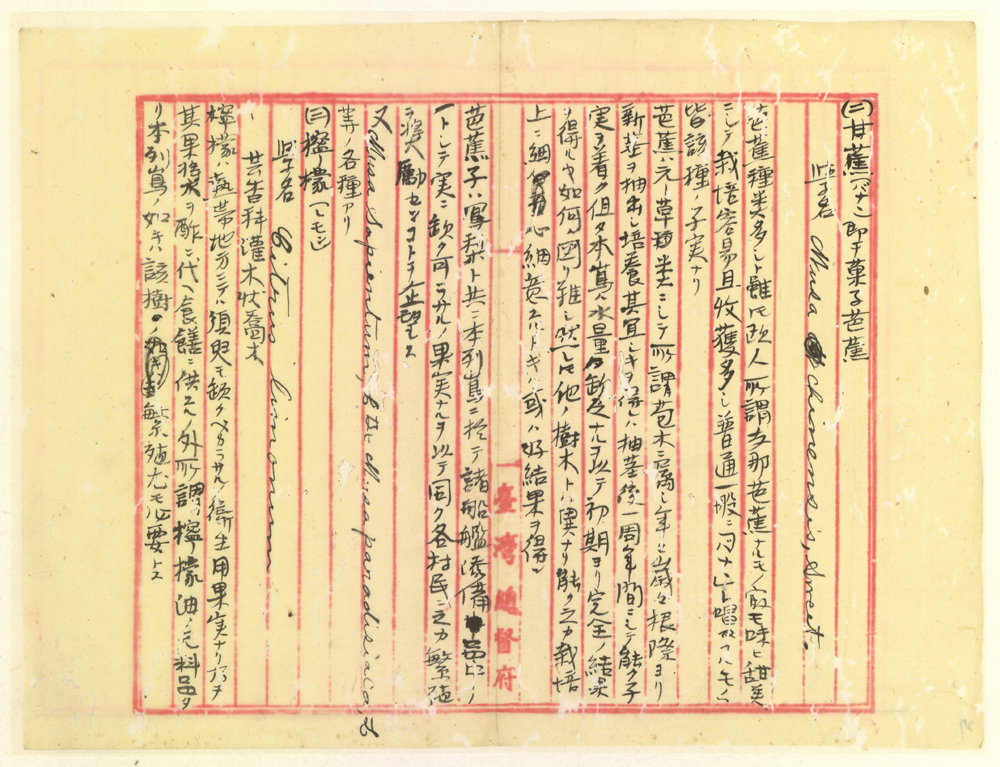 (二)甘蕉(バナナ)即チ菓子芭蕉
學名 Musa chinensis, Sweet.
芭蕉種類多シト雖ㇳモ欧人所謂支那芭蕉ナルモノ最モ味ヒ甜美
ニシテ栽培容易且收獲多シ普通一般ニバナナト唱フルハモ
皆該種ノ子実ナリ
芭蕉ハ元ト草種類ニシテ所謂苞木ニ屬シ年ヒ歳々根際ヨリ
新莖ヲ抽出シ培養其宜シキヲ得レハ抽莖後一周年間ニシテ能ク子
実ヲ着ク但タ本島ハ水量缺乏ナルヲ以テ初期ヨリ完全ノ結果
ヲ得ルヤ如何ハ図リ難シ然レㇳモ他ノ樹木トハ異ナリ能ク之カ栽培
上ニ細心細意スルトキハ或ハ好結果ヲ得ン
芭蕉子ハ鳳梨ト共ニ本列島ニ於テ諸船艦添備品ノ
一トシテ実ニ缺ク可ラサルノ果実ナルヲ以テ固ク各村民ニ之カ繁殖
ヲ奨勵センコトヲ企望ス
又 Musa Sapientum, 及ヒ M. saparadisiaca, 等
等ノ各種アリ
(三)檸檬(レモン)
學名 Citrus limonum
芸香科灌木狀喬木
檸檬ハ熱帯地方ニテハ須臾モ缺クヘカラサル衛生用果実ナリ
其果漿ヲ酢ニ代ヘ食膳ニ供スルノ外所謂檸檬油ノ元料品タ
リ本列島ノ如キハ該樹ノ繁殖尤モ必要トス
臺灣總督府